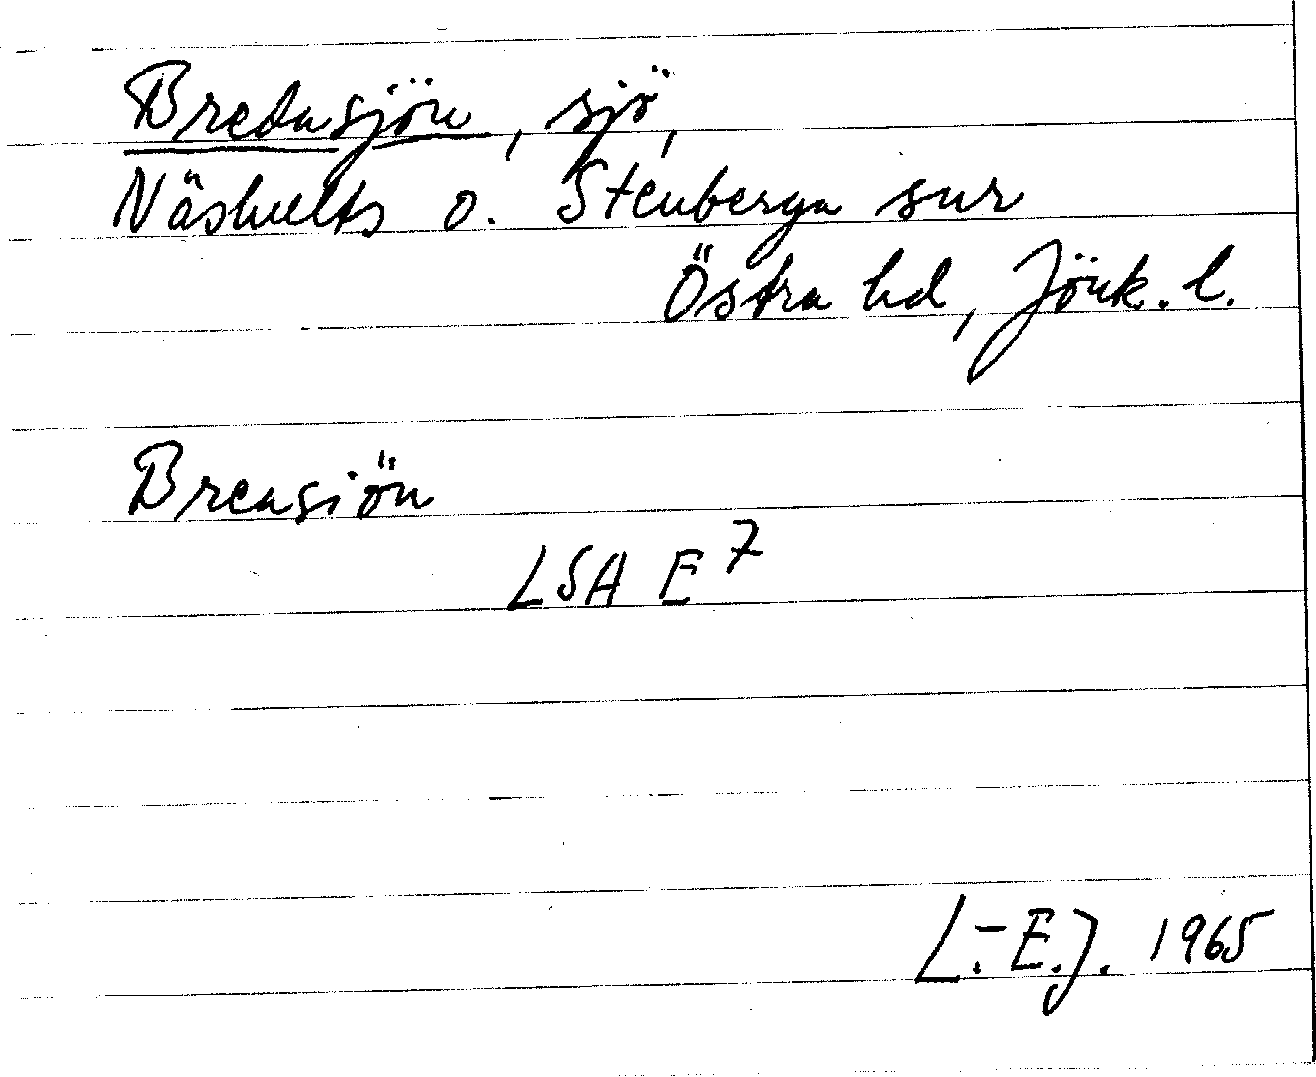 Bredasjön, sjö,
Näshults o. Stenberga snr
Östra hd, Jönk. l.
Breasiön
LSA E 7
L.-E.J. 1965